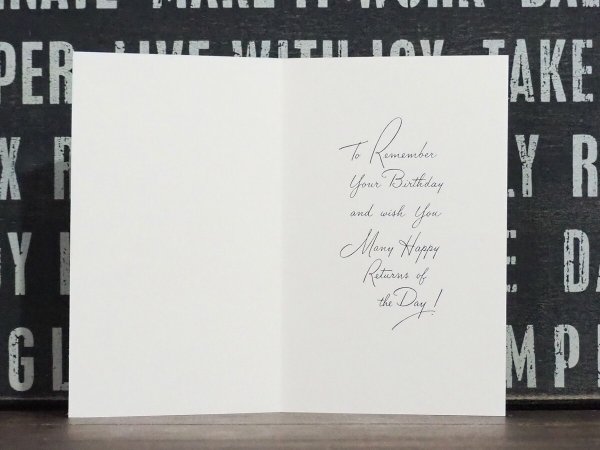 MAKE IT WORK
LIVE WITH JOY TAKE
To Remember
Your Birthday
and wish You
Many Happy
Returns of
the Day!